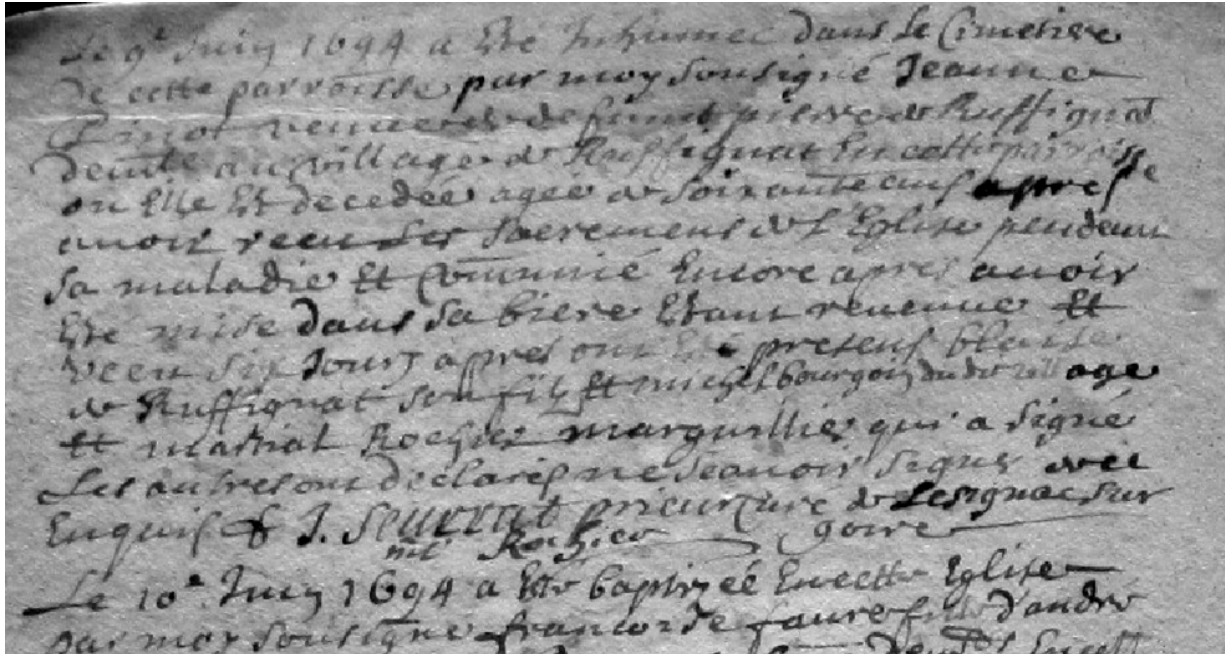 Le 9e Juin 1694 a Esté Inhumée dans le Cimetiere
de cette parroisse par moy soussigné Jeanne
veuve de defunt pierre de Ruffignat
demte au village de Ruffignat En cette parroisse
ou Elle Est decedée agée de soixante ans apres
avoir receu les sacremens de l'Eglise pendant
sa maladie Et Communié Encore apres avoir
Esté mise dans sa biere Estant revenue Et
vecu six Jours apres ont Esté presens blaise
de Ruffignat son fils Et michel bourgoin dudt village
Et martial Rochier marguillier qui a signé
Les autres ont declaré ne scavoir signer de ce
Enquis & J. Seurrat prieur curé de Lesignac sur
ml Rochier goire
Le 10e Juin 1694 a Esté baptizéé En cette Eglise
par moy soussigné francoise faure fille d'andre